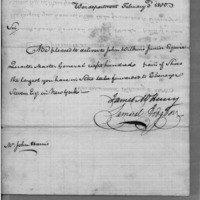 War department February 5 1800.
Sir
Be pleased to deliver to John Wilkins Junior Esquire
Quarter Master General eight hundred pair of Shoes
the largest you have in Store to be forwarded to Ebenezer
Stevens Esqr. in New York
James McHenry
Samuel Hodgdon
Mr John Harris